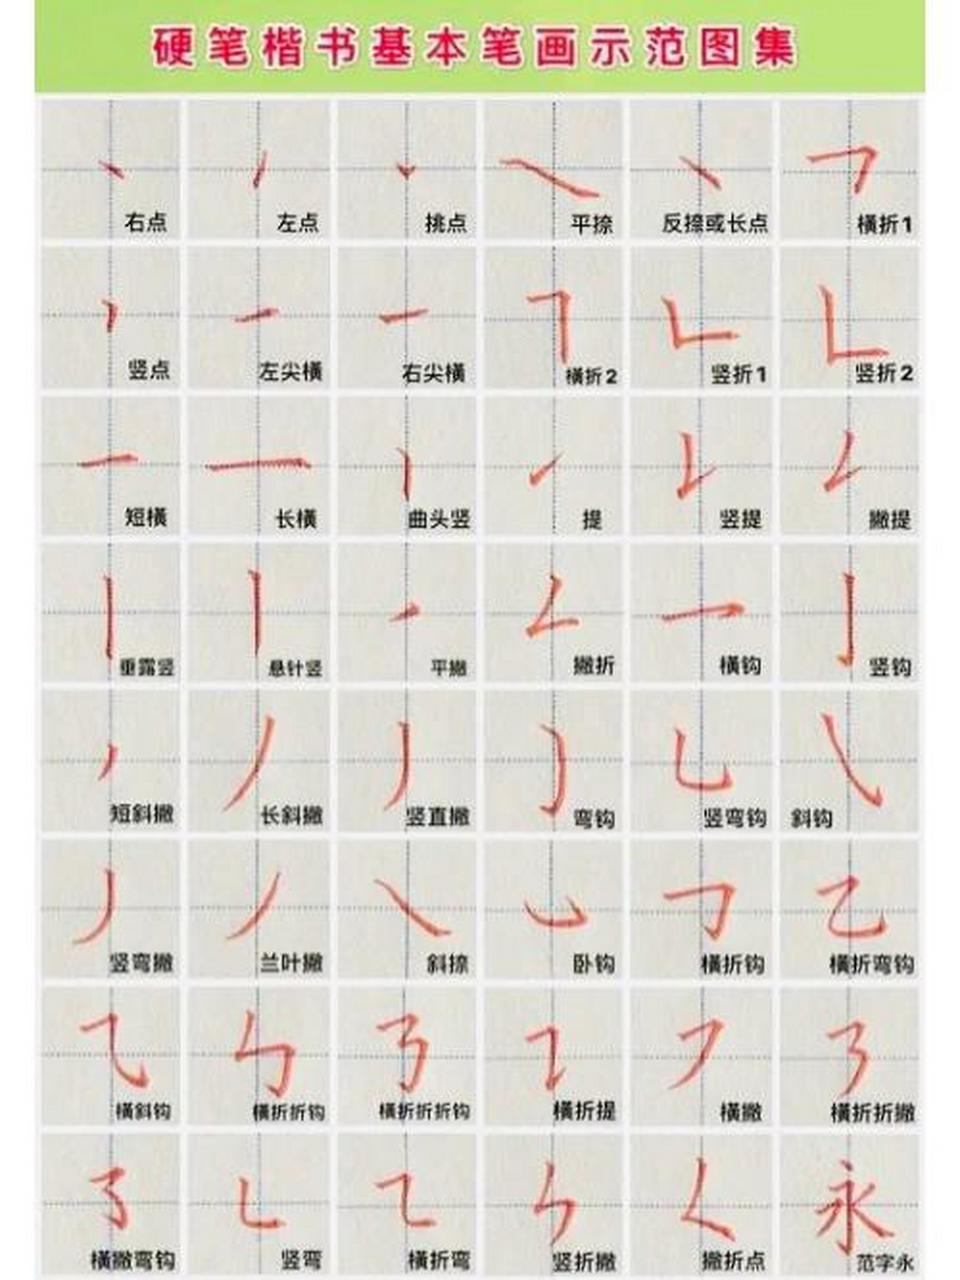 硬笔楷书基本笔画示范图集
右点 左点 挑点 平捺 反捺或长点 横折1
竖点 左尖横 右尖横 横折2 竖折1 竖折2
短横 长横 曲头竖 提 竖提 撇提
垂露竖 悬针竖 平撇 撇折 横钩 竖钩
短斜撇 长斜撇 竖直撇 弯钩 竖弯钩 斜钩
竖弯撇 兰叶撇 斜捺 卧钩 横折钩 横折弯钩
横斜钩 横折折钩 横折折折钩 横折提 横撇 横折折撇
永
横撇弯钩 竖弯 横折弯 竖折撇 撇折点 范字永